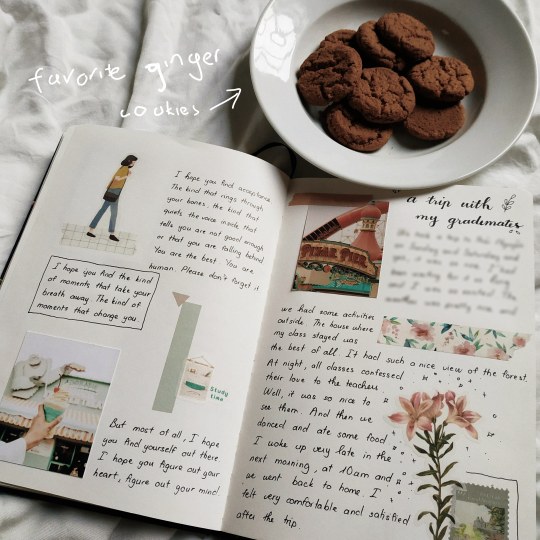 favorite ginger
cookies
I hope you find acceptance.
The kind that rings through
your bones, the kind that
quiets the voice inside that
tells you are not good enough
or that you are falling behind
You are the best. You are
human. Please don't forget it
I hope you find the kind
of moments that take your
breath away. The kind of
moments that change you
Study
time
But most of all, I hope
you find yourself out there.
I hope you figure out your
heart, figure out your mind.
a trip with
my grademates
we had some activities
outside. The house where
my class stayed was
the best of all. It had such a nice view of the forest.
At night, all classes confessed
their love to the teachers
Well, it was so nice to
see them. And then we
danced and ate some food.
I woke up very late in the
next morning, at 10am and
we went back to home. I
felt very comfortable and satisfied
after the trip.